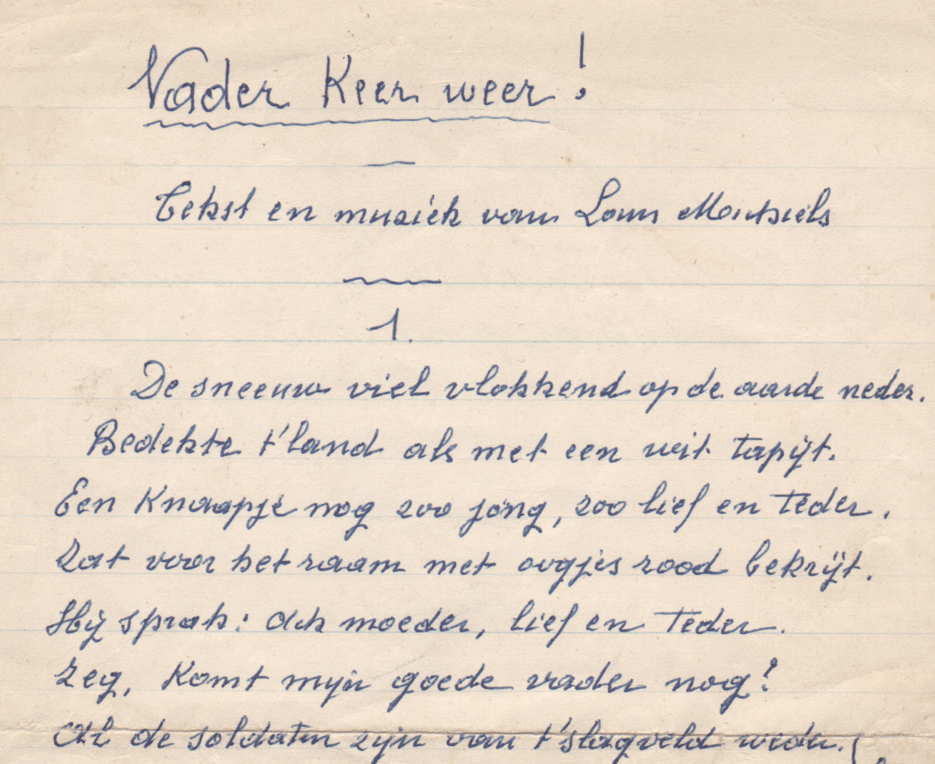 Vader Keer weer!
Tekst en muziek van Loun
1.
De sneeuw viel vlokkend op de aarde neder.
Bedekte t'land als met een wit tapijt.
Een Knaapje nog zoo jong, zoo lief en teder.
Zat voor het raam met oogjes rood bekrijt.
Hij sprak: Ach moeder, lief en teder.
Zeg, Komt mijn goede vader nog?
Al de soldaten zijn van t'slagveld weder.